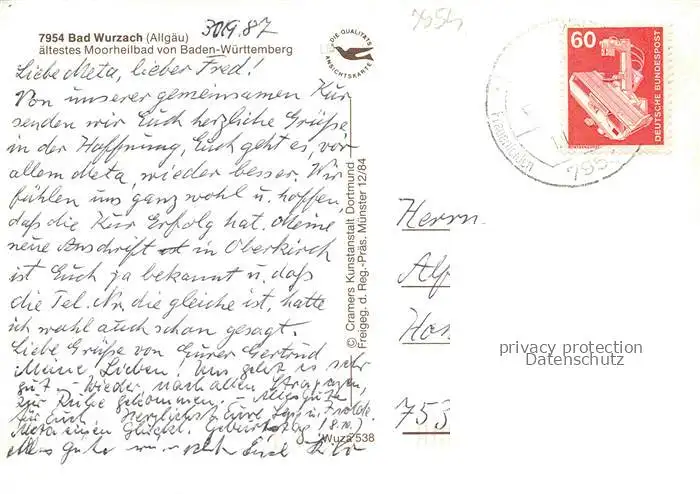 30.9.87
7954
7954 Bad Wurzach (Allgäu)
ältestes Moorheilbad von Baden-Württemberg
DIE QUALITÄTS
ANSICHTSKARTE
Liebe Meta, lieber Fred!
Von unserer gemeinsamen Kur
senden wir Euch herzliche Grüße
in der Hoffnung, Euch geht es, vor
allem Meta, wieder besser. Wir
fühlen uns ganz wohl u. hoffen
daß die Kur Erfolg hat. Meine
neue Anschrift in Oberkirch
ist Euch ja bekannt u. daß
die Tel. Nr. die gleiche ist, hatte
ich wohl auch schon gesagt.
Liebe Grüße von Eurer Gertrud
Meine Lieben! Uns geht es sehr
gut. - Wieder, nach allen Strapazen,
zur Ruhe gekommen. - Alles Gute
für Euch. Herzlichst Eure u. Isolde
Meta einen Glückl. Geburtstag! (8.10.)
Alles Gute Euch
© Cramers Kunstanstalt Dortmund
Freigeg. d. Reg.-Präs. Münster 12/84
Wuza 538
60
DEUTSCHE BUNDESPOST
795
Herrn
Alf
Han
753
privacy protection
Datenschutz